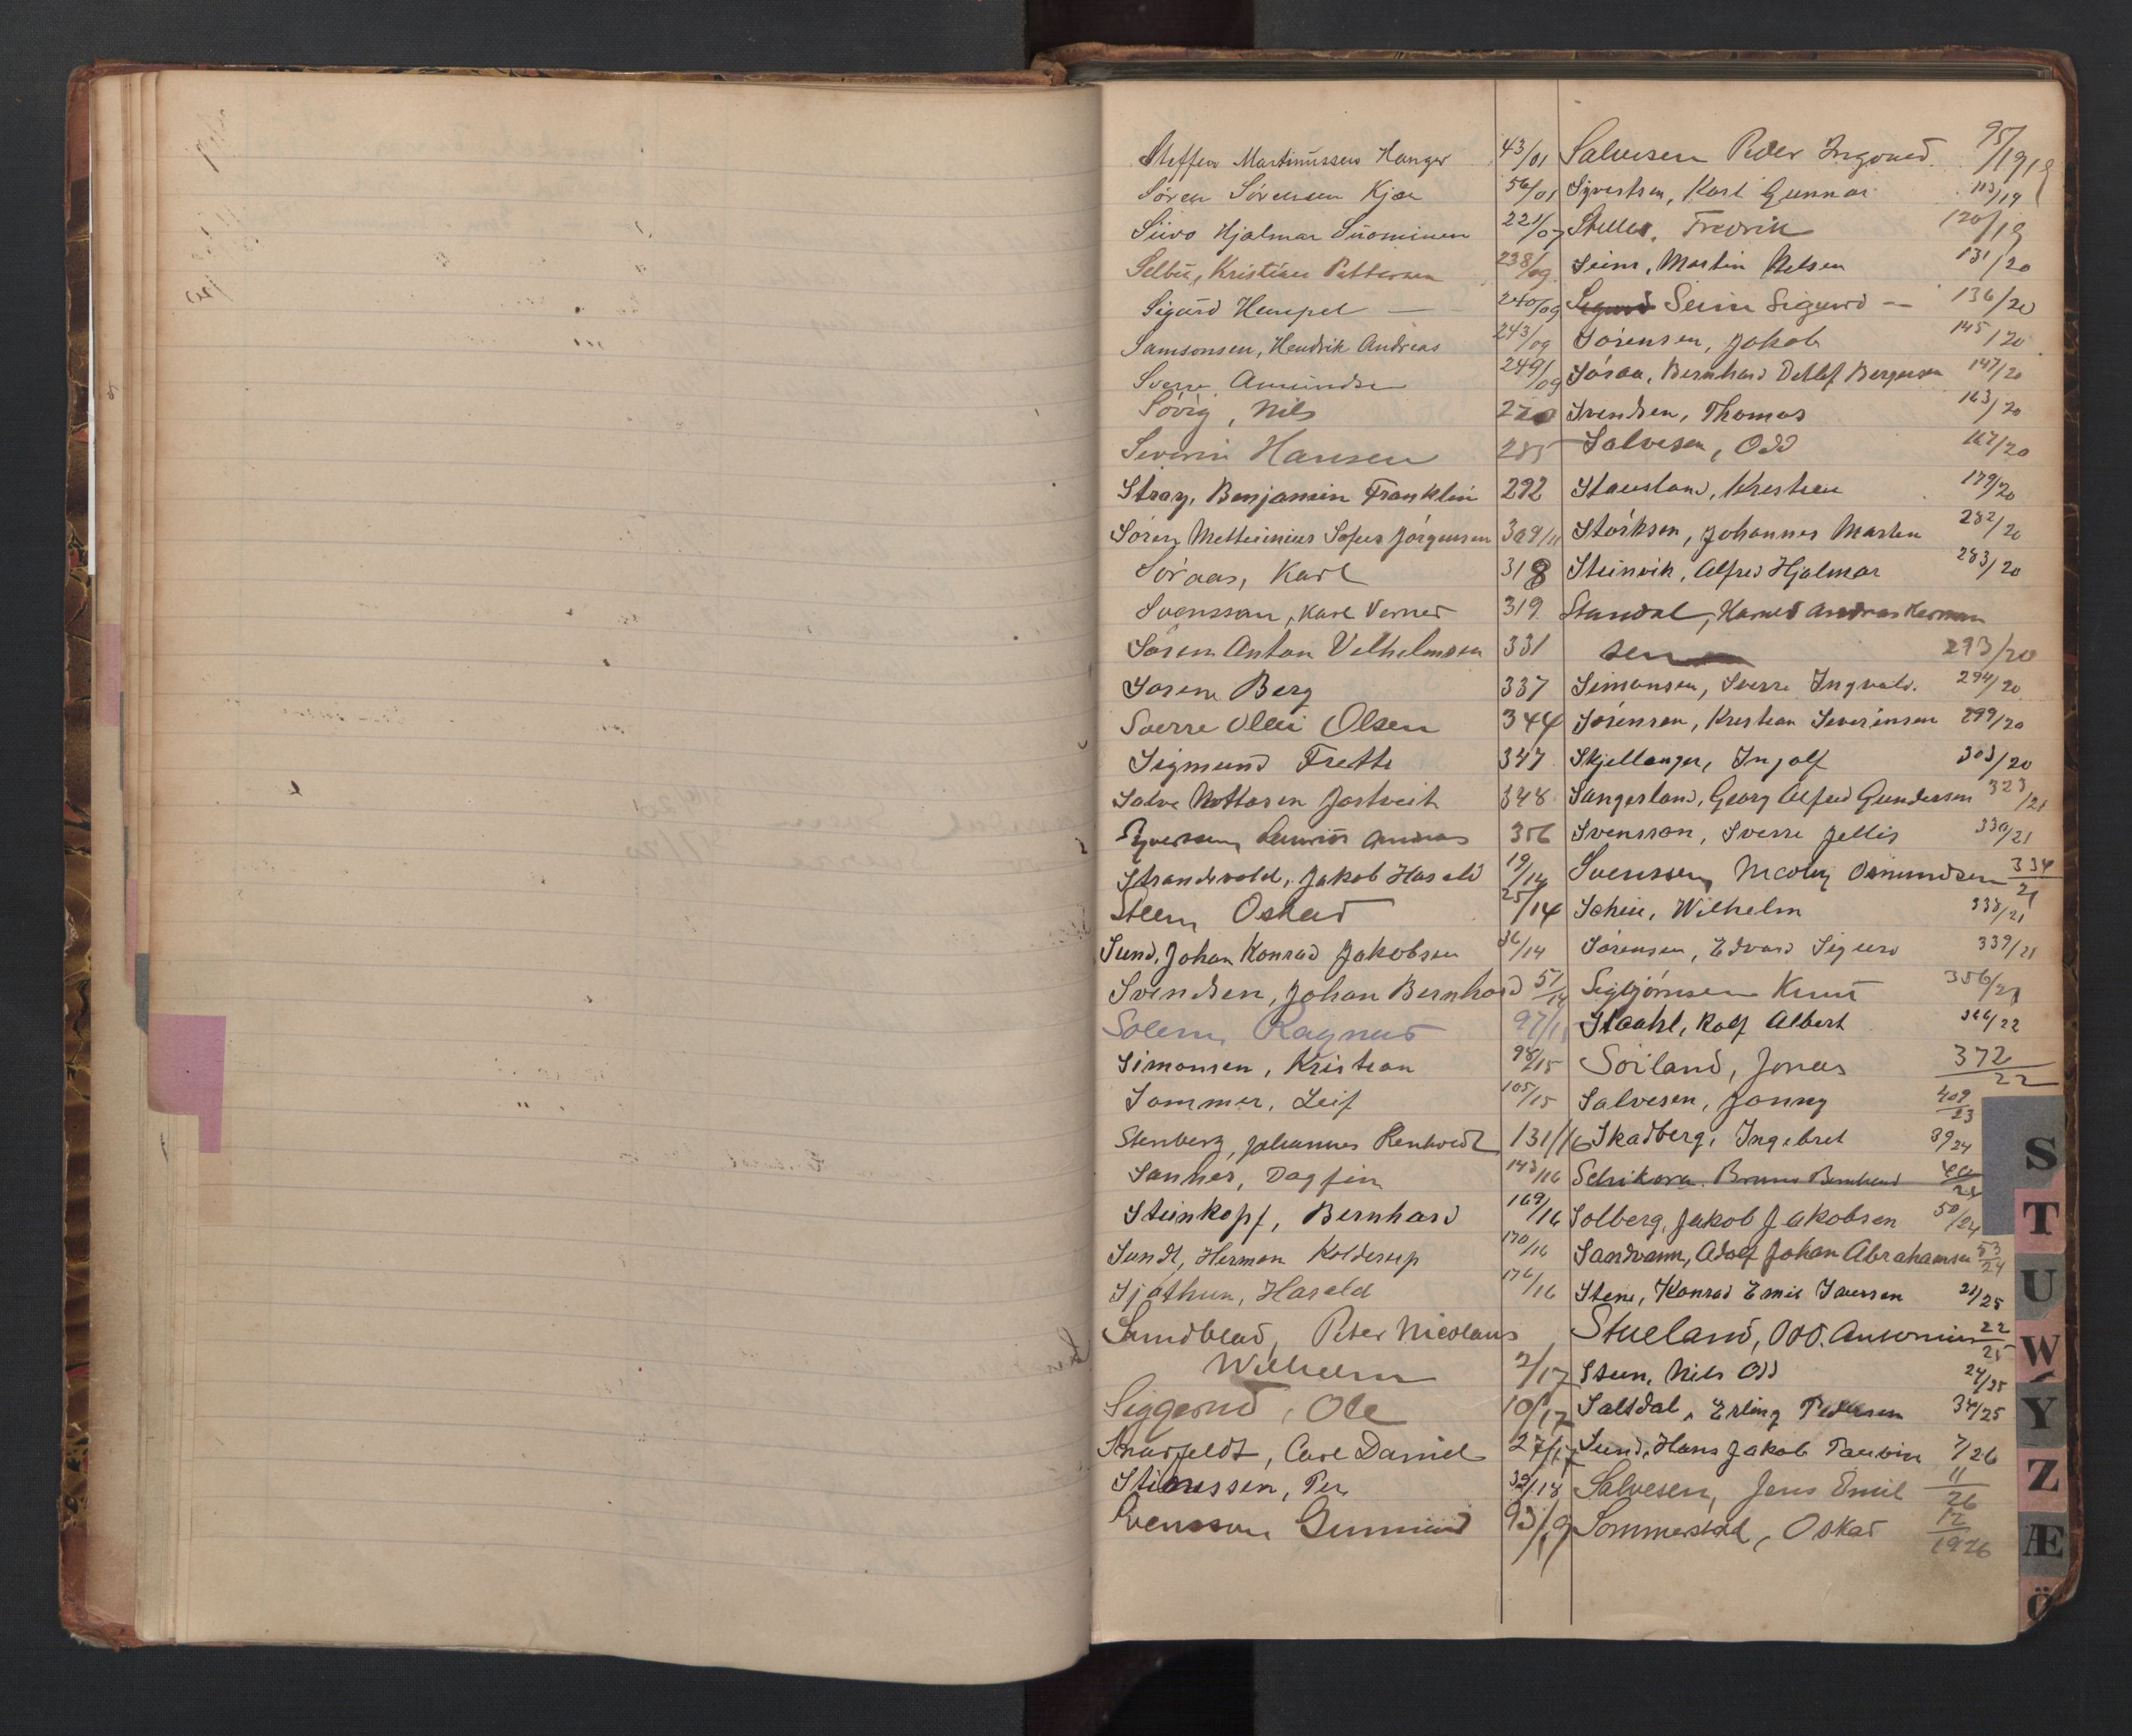 Steffen Martinussen Hanger 43/01
Søren Sørensen Kjær 56/01
Siivo Hjalmar Suominen 221/07
Selbu, Kristian Pettersen 238/09
Sigurd Hempel — 240/09
Samsonsen, Hendrik Andreas 243/09
Sverre Amundsen 249/09
Sövig, Nils
Severin Hansen 285
Stray, Benjamin Franklin 292
Sören Jörgensen 309/11
Söraas, Karl 318
Svensson, Karl Verner 319
Sören Anton Vilhelmsen 331
Sören Berg 337
Sverre Olai Olsen 344
Sigmund Frette 347
Salve Jortveit 348
Andreas 356
Strandvold, Jakob Harald 19/14
Steen Oskar 25/14
Sund, Johan Konrad Jakobsen 36/14
Svendsen, Johan Bernhard 51/14
Solem, Ragnar 97/15
Simonsen, Kristian 98/15
Sommer, Leif 105/15
Stenberg, Johannes 131/16
Sannes, Dagfin 143/16
Steinkopf, Bernhard 169/16
Sundt, Herman Kolderup 170/16
Sjøthun, Harald 176/16
Sundblad, Peter Nicolaus
Wilhelm 2/17
Siggerud, Ole 10/17
Snarfeldt, Carl Daniel 27/17
Stianssen, Per 39/18
Svensson Gunnar 93/19
Salvesen Peder Ingvard 95/1919
Syvertsen, Karl Gunnar 113/19
Steller, Fredrik 120/19
Seim, Martin Nelsen 131/20
Sigurd Seim Sigurd — 136/20
Sörensen, Jakob 145/20
Söraa, Bernhard Detlef Bergersen 147/20
Svendsen, Thomas 163/20
Salvesen, Odd 167/20
Stausland, Kristian 179/20
Störksen, Johannes Martin 282/20
Steinvik, Alfred Hjalmar 283/20
Standal, Harald Andreas Herman
sen 293/20
Simonsen, Sverre Ingvald. 294/20
Sörensen, Kristian Severinsen 299/20
Skjellanger, Ingolf 303/20
Sangesland, Georg Alfred Gundersen 323/21
Svensson, Sverre Jellis 330/21
Svenssen, Nicolay Osmundsen 334/21
Schei, Wilhelm 338/21
Sörensen, Edvard Sigurd 339/21
Sigbjörnsen Knut 356/21
Staahl, Rolf Albert 366/22
Söiland, Jonas 372/22
Salvesen, Jonny 409/23
Skadberg, Ingebret 39/24
Schikora. Bruno Bernhard
Solberg, Jakob Jakobsen 50/24
Sandvann, Adolf Johan Abrahamsen 53/24
Stene, Konrad Emil 21/25
Stueland, Odd. Antonius 22/25
Steen, Nils Odd 24/25
Saltdal, Erling Pedersen 34/25
Sund, Hans Jakob 7/26
Salvesen, Jens Emil 11/26
Sommerstad, Oskar 12/1926
S
T
U
W
Y
Z
Æ
Ö